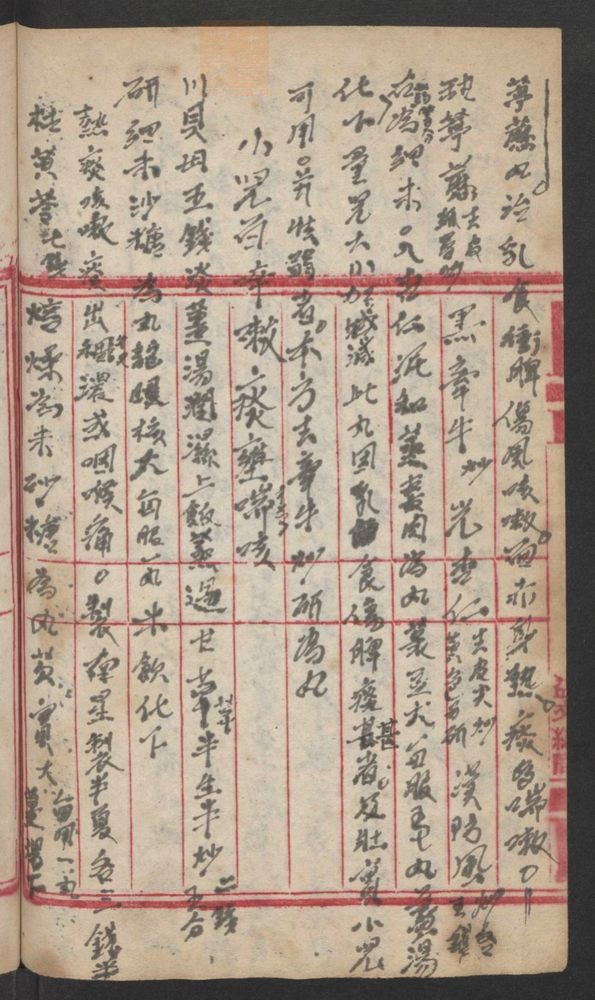 葶藶丸治乳食衝脾傷風咳嗽面赤身熱痰多喘嗽
甜葶藶去皮紙蒡炒黑牽牛炒光杏仁去皮尖炒黃色另研漢防風炒各去
右藥各分為細末入杏仁泥和蒸棗肉為丸菉豆大每服五七丸薑湯
化下量兒大小加減此丸因乳食傷脾痰甚者及壯實小兒
可用若怯弱者本方去牽牛炒研為丸
小兒百啐嗽痰壅喘咳
川貝母五錢淡薑湯潤濕上飯蒸過甘草半生半炒二錢五分
研細末沙糖為丸龍眼核大每服一丸米飲化下
熱痰咳嗽痰出稠濃或咽喉痛製南星製半夏各三錢半
枯黃芩七錢焙燥為末砂糖為丸芡實大每用一丸薑湯下